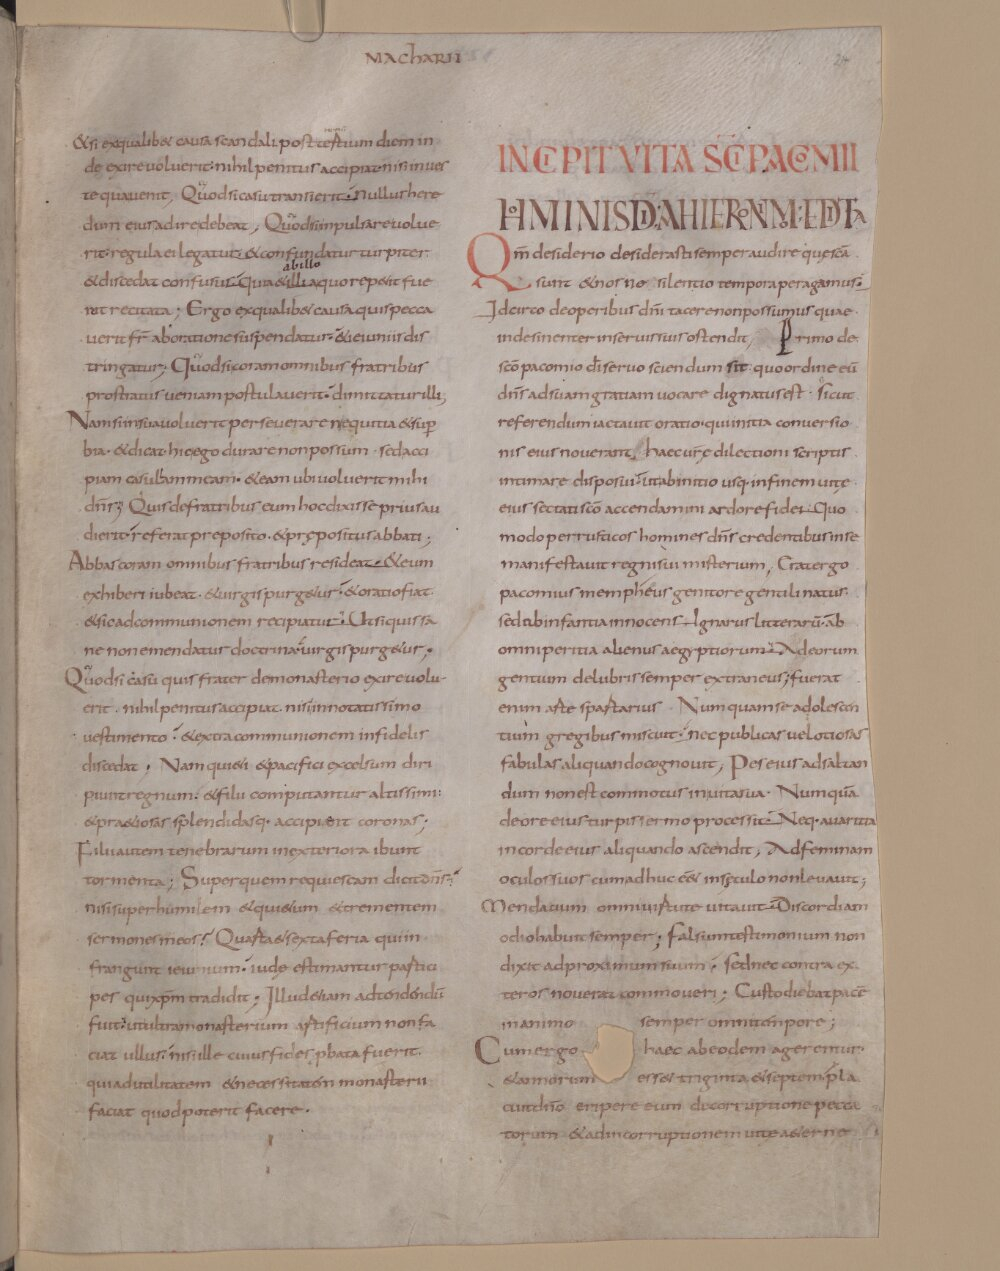 MAChARII
24
& si ex qualib& causa scandali. post testum diem in
de exire voluerit. nihil penitus accipiat nisi in ves
te qua venit, Quod si casu transierit. Nullus here
dum eius adire debeat, Quod si inpulsare volue
rit. regula ei legatur. & confundatur turpiter
abillo
& discedat confusus. Quia & illi a quo repetit fue
rat recitata; Ergo ex qualib& causa quis pecca
verit fr̄ ab oratione suspendatur. & ieiuniis dis
tringatur; Quod si coram omnibus fratribus
prostratus veniam postulaverit. dimittatur illi;
Nam si in sua voluerit perseverare nequitia & sup̄
bia. & dicat. hic ego durare non possum. sed acci
piam casulam meam. & eam ubi voluerit mihi
dn̄s; Quis de fratribus eum hoc dixisse prius au
dierit. referat preposito. & prepositus abbati;
Abbas coram omnibus fratribus resideat. & eum
exhiberi iubeat. & virgis purg&ur. & oratio fiat.
& sic ad communionem recipiatur. Ut si quis sa
ne non emendatus doctrina. virgis purg&ur.
Quod si casu quis frater de monasterio exire volu
erit. nihil penitus accipiat. nisi innotatissimo
vestimento. & extra communionem infidelis
discedat. Nam qui&i & pacifici excelsum diri
piunt regnum. & filii computantur altissimi.
& pr&iosas splendidasq. accipient coronas;
Filii autem tenebrarum in exteriora ibunt
tormenta; Super quem requiescam dicit dn̄s.
nisi super humilem & qui&um & trementem
sermones meos. Quarta & sexta feria qui in
frangunt ieiunium. iude estimantur pastici
pes qui xp̄m tradidit; Illud &iam adtendendū
fuit. ut ultra monasterium artificium non fa
ciat ullus. nisi ille cuius fides pbata fuerit.
qui ad utilitatem & necessitatem monasterii
faciat quod poterit facere.
INCIPIT VITA SCI PACOMII
HOMINIS DI A HIERONIMO EDITA
Qm̄ desiderio desiderasti semper audire que scā
sunt & nos no silentio tempora peragamus.
Idcirco de operibus dn̄i tacere non possumus quae
indesinenter in servis suis ostendit, Primo de
sc̄o pacomio dī servo sciendum sit. quo ordine eū
dn̄s ad suam gratiam vocare dignatus est. Sicut
referendum iactavit oratio. qui initia conversio
nis eius noverant, haec cure dilectioni scriptis
intimare disposui. ut ab initio usq. in finem vite
eius sectati sc̄o accendamini ardore fidei. Quo
modo per rusticos homines dn̄s credentibus in se
manifestavit regni sui misterium, Erat ergo
pacomius in empheus genitore gentili natus.
sed ab infantia innocens. Ignarus litterarū. ab
omni peritia alienus aegyptiorum. Adeorum
gentium delubris semper extraneus; fuerat
enim arte spartarius. Numquam se adolescen
tium gregibus miscuit. nec publicas vel otiosas
fabulas aliquando cognovit, Pes eius ad saltan
dum non est commotus in vita sua. Numquā
de ore eius turpis sermo processit. Neq. avaritia
in corde eius aliquando ascendit, Ad feminam
oculos suos cum adhuc e&̄ in seculo non levavit;
Mendacium omni virtute vitavit. Discordiam
odio habuit semper; falsum testimonium non
dixit ad proximum suum. Sed nec contra ex
teros noverat commoveri; Custodiebat pacē
in animo semper omni tempore;
Cum ergo haec ab eodem agerentur.
& annorum ess& triginta & septem. pla
cuit dn̄o eripere eum de corruptione pecca
torum & ad incorruptionem vite a&erne